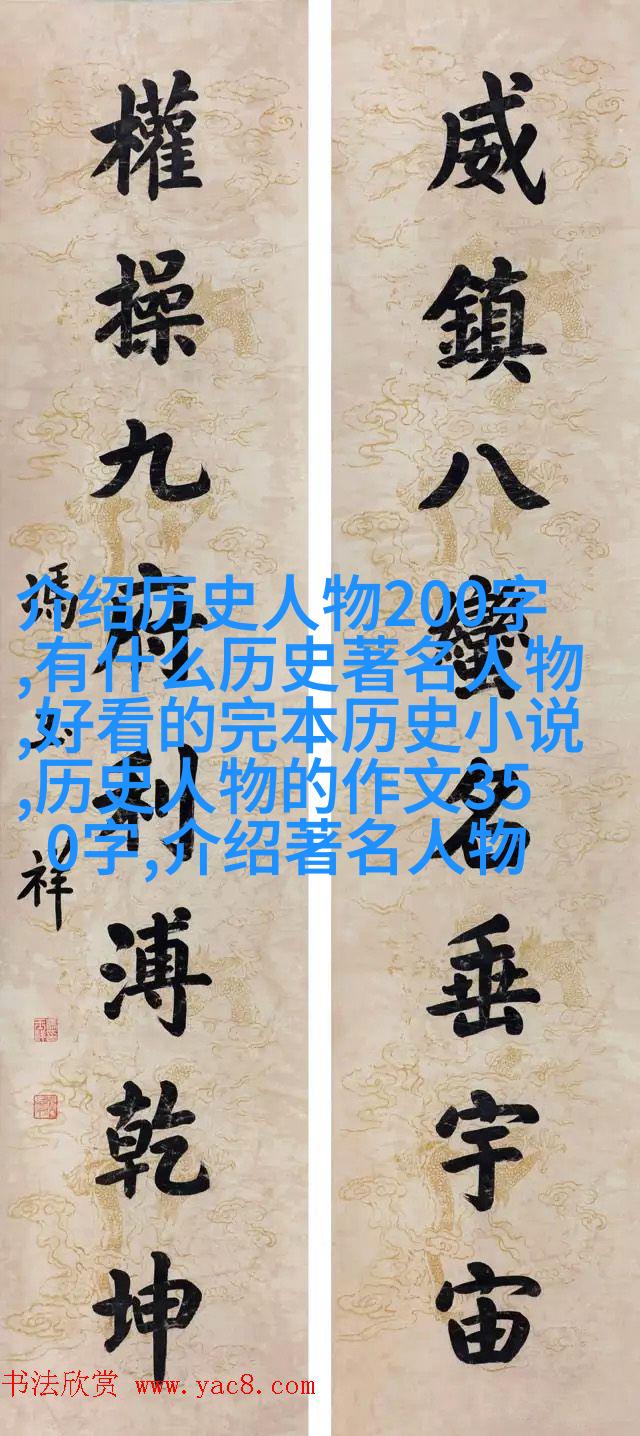 威鎮八蠻名垂宇宙
權操九府利溥乾坤
馮 祥
介绍历史人物200字
,有什么历史著名人物
,好看的完本历史小说
,历史人物的作文35
0字,介绍著名人物
书法欣赏 www.yac8.com